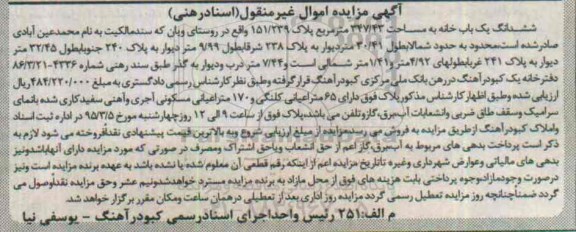 آگهی مزایده اموال غیرمنقول(اسنادرهنی)
ششدانگ یک باب خانه به مساحت ۳۴۷/۴۳ مترمربع پلاک ۱۵۱/۲۳۹ واقع در روستای ویان که سندمالکیت به نام محمدعین آبادی
صادرشده است.محدود به حدود شمالابطول ۳۰/۴۱ متردیوار به پلاک ۲۳۸ شرقابطول ۹/۹۹ متر دیوار به پلاک ۲۴۰ جنوبابطول ۳۲/۴۵ متر
دیوار به پلاک ۲۴۱ غربابطولهای ۴/۹۲متر و۱/۴۱متر شمالی است و۷/۴۴متر درب ودیوار به گذر طبق سند رهنی شماره ۴۳۳۶-۸۶/۳/۲۱
دفترخانه یک کبودرآهنگ دررهن بانک ملی مرکزی کبودرآهنگ قرار گرفته وطبق نظر کارشناس رسمی دادگستری به مبلغ ۴۸۴/۲۲۰/۰۰۰ریال
ارزیابی شده وطبق اظهار کارشناس مذکورپلاک فوق دارای ۶۵متراعیانی کلنگی و۱۷۰متراعیانی مسکونی آجری وآهنی سفیدکاری شده بانمای
سرامیک وسقف طاق ضربی وانشعابات آب،برق،گازوتلفن می باشد،پلاک فوق از ساعت ۹ الی ۱۲ روزچهارشنبه مورخ ۹۵/۳/۵ در اداره ثبت اسناد
واملاک کبودرآهنگ ازطریق مزایده به فروش می رسدمزایده از مبلغ ارزیابی شروع وبه بالاترین قیمت پیشنهادی نقدأفروخته می شود لازم به
ذکر است پرداخت بدهی های مربوط به آب،برق،گاز اعم از حق انشعاب وياحق اشتراک ومصرف در صورتی که مورد مزایده دارای آنهاباشدونیز
بدهی های مالیاتی وعوارض شهرداری وغیره تاتاریخ مزایده اعم از اینکه رقم قطعی آن معلوم شده یا نشده باشد به عهده برنده مزایده است ونیز
درصورت وجودمازادوجوه پرداختی بابت هزینه های فوق از محل مازاد به برنده مزایده مسترد خواهدشدونیم عشر وحق مزایده نقدأوصول می
گردد ضمنأچنانچه روز مزایده تعطیل رسمی گردد مزایده روز اداری بعداز تعطیلی درهمان ساعت ومکان مقرر برگزار خواهد شد.
م الف:۲۵۱ رئیس واحداجرای اسنادرسمی کبودرآهنگ - یوسفی نیا